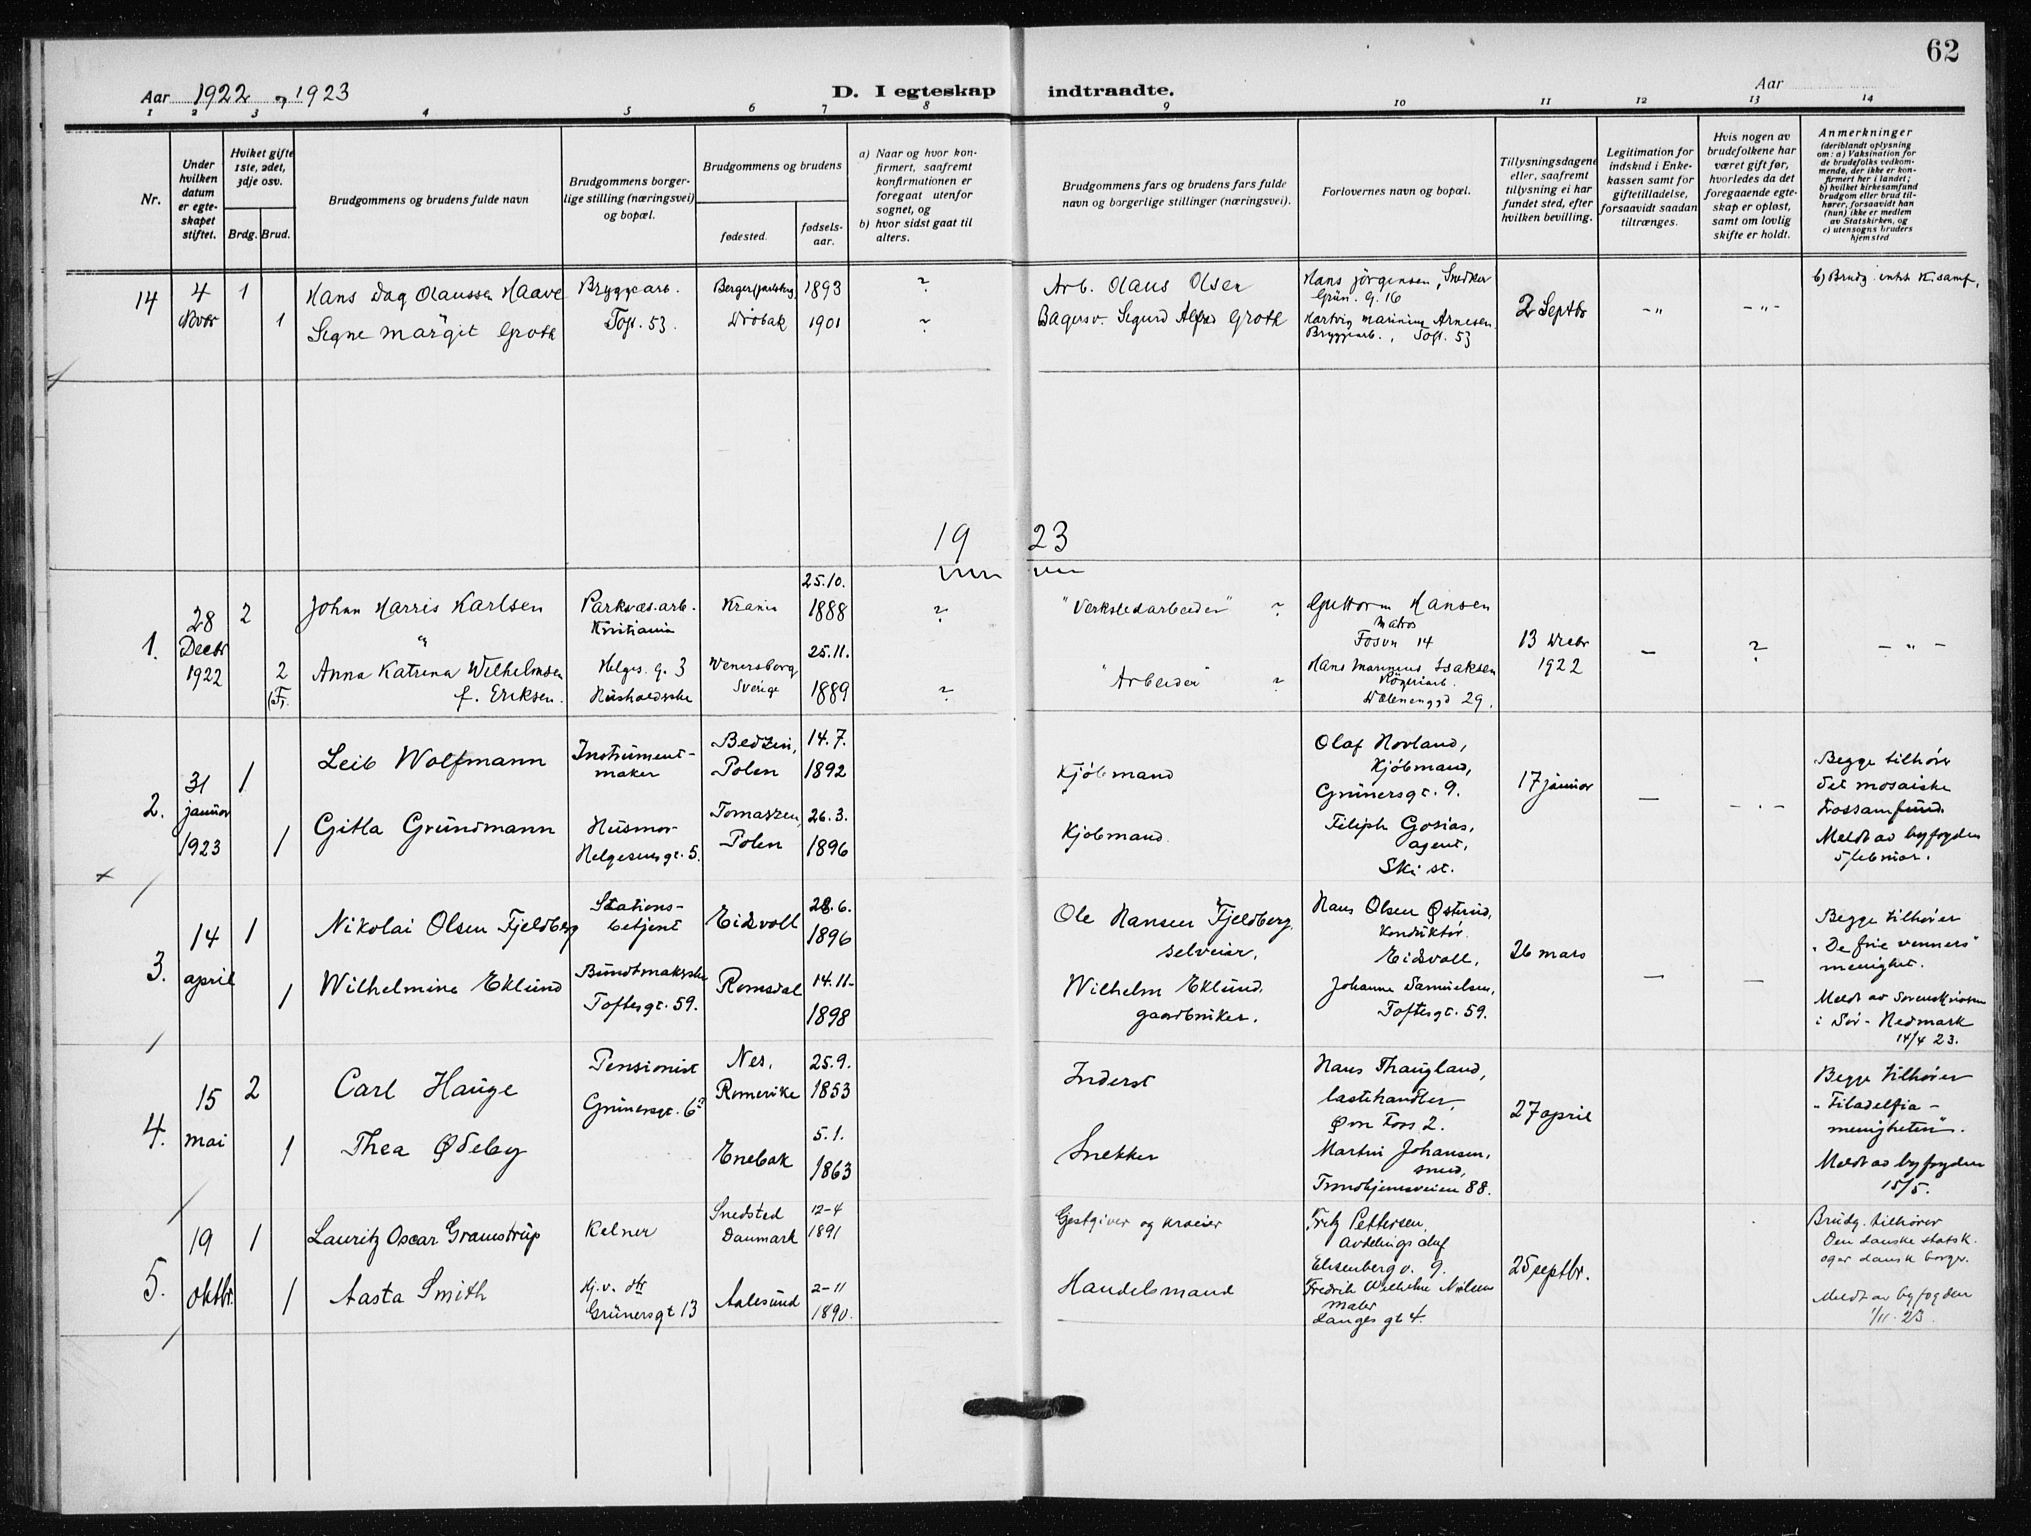 62
Aar 1922 og 1923
D. I egteskap indtraadte.
Aar
1 2 3 4 5 6 7 8 9 10 11 12 13 14
Nr.
Under hvilken datum er egteskapet stiftet.
Hviket gifte 1ste, 2det, 3dje osv.
Brdg. Brud.
Brudgommens og brudens fulde navn
Brudgommens borgerlige stilling (næringsvei) og bopæl.
Brudgommens og brudens
fødested. fødselsaar.
a) Naar og hvor konfirmert, saafremt konfirmationen er foregaat utenfor sognet, og
b) hvor sidst gaat til alters.
Brudgommens fars og brudens fars fulde navn og borgerlige stillinger (næringsvei).
Forlovernes navn og bopæl.
Tillysningsdagene eller, saafremt tillysning ei har fundet sted, efter hvilken bevilling.
Legitimation for indskud i Enkekassen samt for giftetilladelse, forsaavidt saadan tiltrænges.
Hvis nogen av brudefolkene har været gift før, hvorledes da det foregaaende egteskap er opløst, samt om lovlig skifte er holdt.
Anmerkninger
(deriblandt oplysning om: a) Vaksination for de brudefolks vedkommende, der ikke er konfirmert her i landet;
b) hvilket kirkesamfund brudgom eller brud tilhører, forsaavidt han (hun) ikke er medlem av Statskirken, og
c) utensogns bruders hjemsted
14
4 Novbr
1
1
Hans Dag Olaussen Haave
Signe Margit Groth
Bryggearb.
Toft. 53.
Berger
1893
Drøbak
1901
?
?
Arb. Olaus Olsen
Bagersv. Sigurd Alfred Groth
Hans Jörgensen, Snedker
Grün. G. 16
Hartvig Marinius Arnesen
Bryggearb., Toft. 53
2 Septbr
- " -
- " -
b) Brudg. intet K. samf.
19 23
1.
28 Decbr 1922
2
2
(F).
Johan Harris Karlsen
Anna Katrina Wilhelmsen
f. Eriksen.
Parkvæs.arb.
Kristiania
Helges. g. 3
Husholderske
Krania
25.10.
1888
Wenersborg
Sverige
25.11.
1889
?
?
"Verkstedarbeider" ?
"Arbeider" ?
Guttorm Hansen
Matros
Fosvn 14
Hans Marinius Isaksen
Wælenenggd 29.
13 Decbr
1922
-
?
- " -
2.
31 januar 1923
1
1
Leib Wolfmann
Gitla Grundmann
Instrumentmaker
Husmor
Helgesensgt. 5.
Bedzin,
Polen
14.7.
1892
Tomaszen,
Polen
26.3.
1896
Kjöbmand
Kjöbmand.
Olaf Hovland,
Kjöbmand,
Grünersgt. 9.
Filiph Gosias,
agent,
Ski st.
17 januar
-
- " -
Begge tilhörer
det mosaiske
trossamfund.
Meldt av byfogden
5 februar.
3.
14 april
1
1
Nikolai Olsen Fjeldberg
Wilhelmine Eklund
Stationsbetjent
Bundtmakerske
Toftesgt. 59.
Eidsvoll
28.6.
1896
Romsdal
14.11.
1898
Ole Hansen Fjeldberg,
selveier.
Wilhelm Eklund,
gaardbruker.
Hans Olsen Østerud,
Konduktör.
Eidsvoll,
Johanne Samuelsen,
Toftesgt. 59.
26 mars
-
-
Begge tilhörer
"De frie venners"
menighet.
Meldt av Sorenskriveren
i Sør-Hedmark
14/4 23.
4.
15 mai
2
1
Carl Hauge
Thea Ødeby
Pensionist
Grünersgt. 6a
Nes,
Romerike
25.9.
1853
Enebak
5.1.
1863
Inderst
Snekker
Hans Thaugland,
lastehandler,
Øvn Foss 2.
Martin Johansen,
smed,
Trondhjemsveien 88.
27 april
Begge tilhörer
"Filadelfia-
menigheten".
Meldt av byfogden
15/5.
5.
19 oktbr.
1
1
Lauritz Oscar Gramstrup
Aasta Smith
Kelner
Hj.v. dtr
Grünersgt 13
Snedsted
Danmark
12-4
1891
Aalesund
2-11
1890.
Gestgiver og kroeier
Handelsmand
Fritz Pettersen,
Avdelingschef
Eilsenberg v. 9.
Fredrik Wilhelm Nielsen
Maler
Langes gt 4.
25 septbr.
Brudg. tilhörer
Den danske statsk.
oger dansk borger.
Meldt av byfogden
1/11. 23.